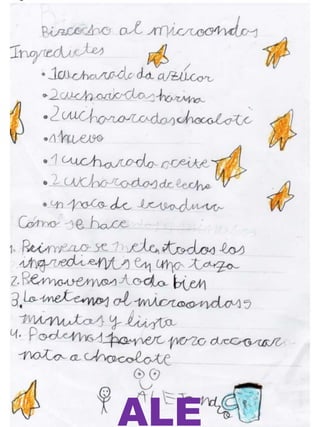 Bizcocho al microondas
Ingredietes
• 1 cucharada da azúcar
• 2 cucharadas harina
• 2 cuchararadas chocolate
• 1 huevo
• 1 cucharada aceite
• 2 cucharadas de leche
• un poco de levadura
Cómo se hace
1. Reimero se mete todos los
ingredients en una tarza
2. Removemos toda bien
3. Lo metemos al microondas 5
minutos y lista
4. Podemos poner para decorar
nata a chocolate
ALE